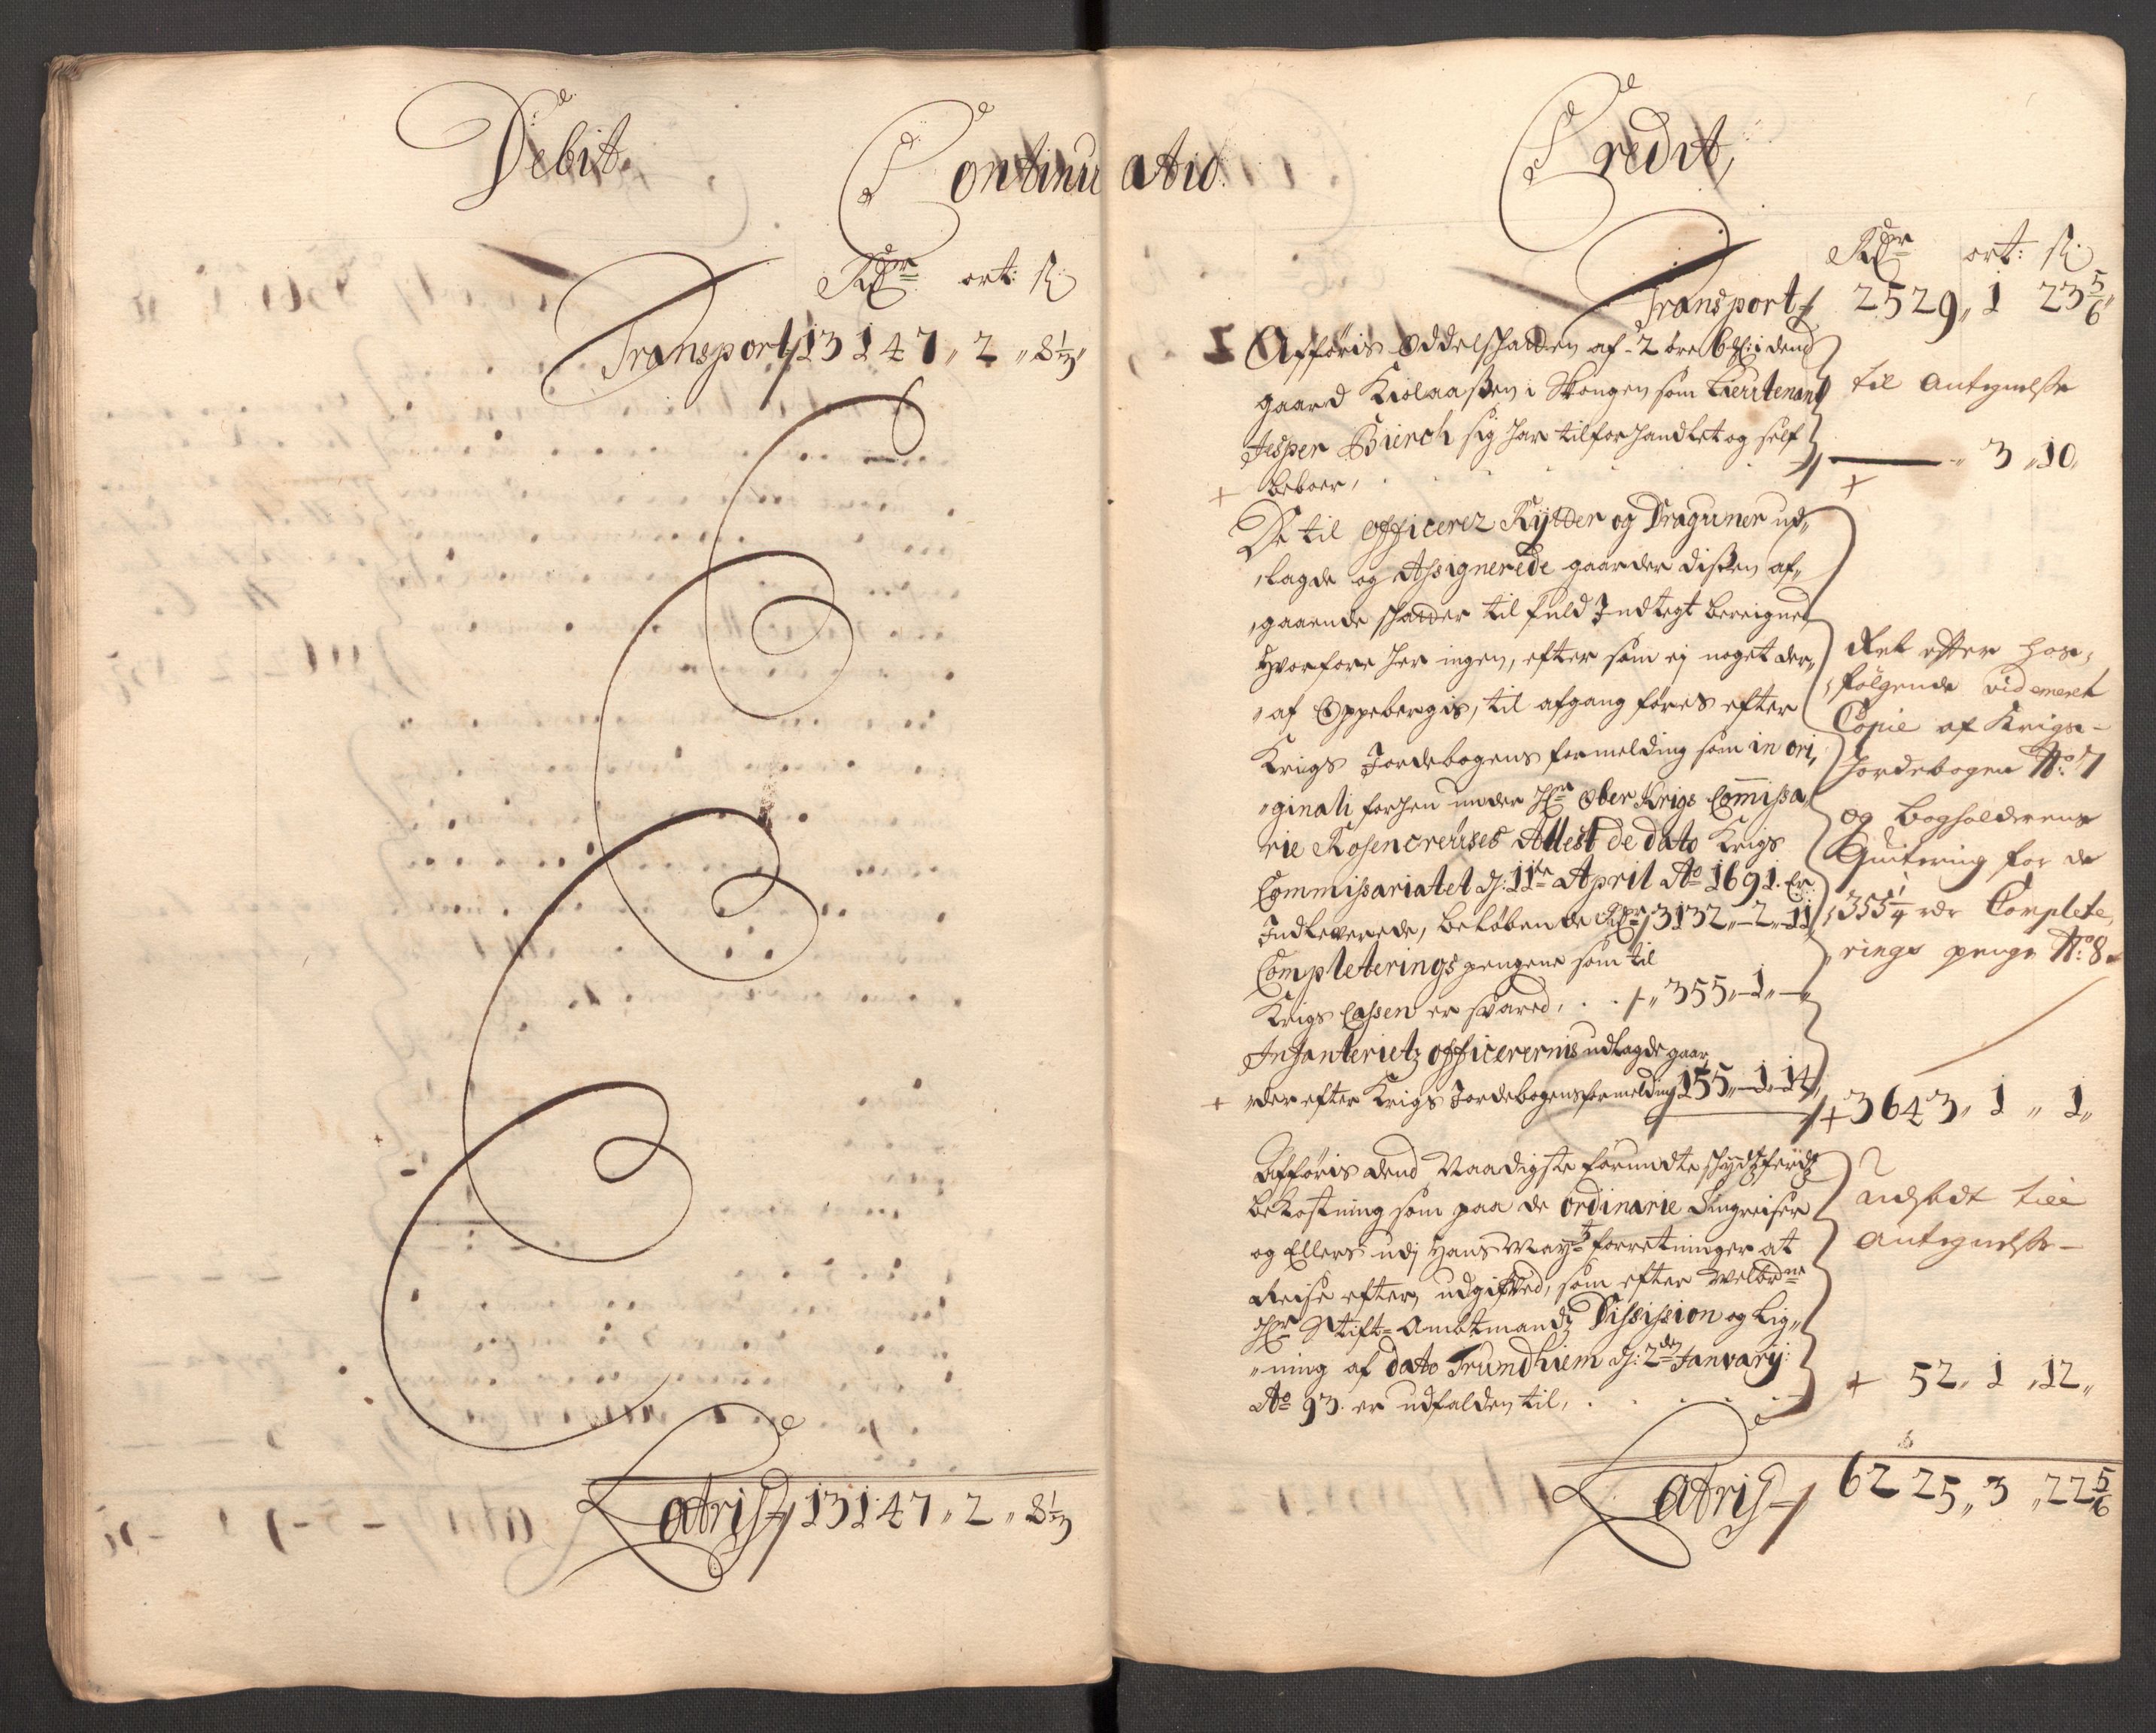 Debit
Continuatio
Rdr ort: s
Transport 13147 „ 2 „ 8 1/3 „
Latris 13147 „ 2 „ 8 1/3
Credit,
Rdr ort: s
Transport 2529 „ 1 23 5/6 „
Afföris Oddelschatten af 2 öre i dend
gaard Kiolaaßen i Skougen som Lieutenant
Jesper Bierch sig har tilforhandlet og self
beboer,
til Antegnelse
3 „ 10
De til officerer Rÿtter og Draguner ud„
„lagde og Assignerede gaarder dißen af„
„gaaende schatter til fuld Indtegt bereignet
Hvorfore her ingen, efter som ej noget der„
„af Oppebergis, til afgang föres efter
Krigs Jordebogens formelding som in ori„
„ginali forhen under Hr Ober Krigs Commissa„
rie Rosencreutzes Attest de dato Krigs
Commissariatet d: 11te April Ao 1691. Er
Indleverede, belöbende Rdr 3132 „ 2 „ 11
Completerings pengene som til
Krigs Cassen er svared, . . „ 355 „ 1 „ —
Infanterietz officerernis udlagde gaar„
„der efter Krigs Jordebogens formelding 155 „ 1 „ 14
Ret efter hos„
„fölgende videmeret
Copie af Krigs-
Jordebogen No: 7
og bogholderens
Quitering for de
355 1/4 rdr Complete„
„rings penge No: 8
+ 3643 „ 1 „ 1 „
Afföris dend Naadigste forundte schydtzferdtz
bekostning som paa de ordinarie Tingreiser
og Ellers udj Hans Mayts forretninger at
Reise efter, udgifved, som efter Welbrne
Hr Stift-Ambtmandz Dissision og Lig„
„ning af dato Trundhiem d: 2den Januarij:
Ao 93. er udfalden til, . . . .
Udsadt till
Antegnelse —
+ 52 „ 1 „ 12 „
Latris 6225 „ 3 „ 22 5/6